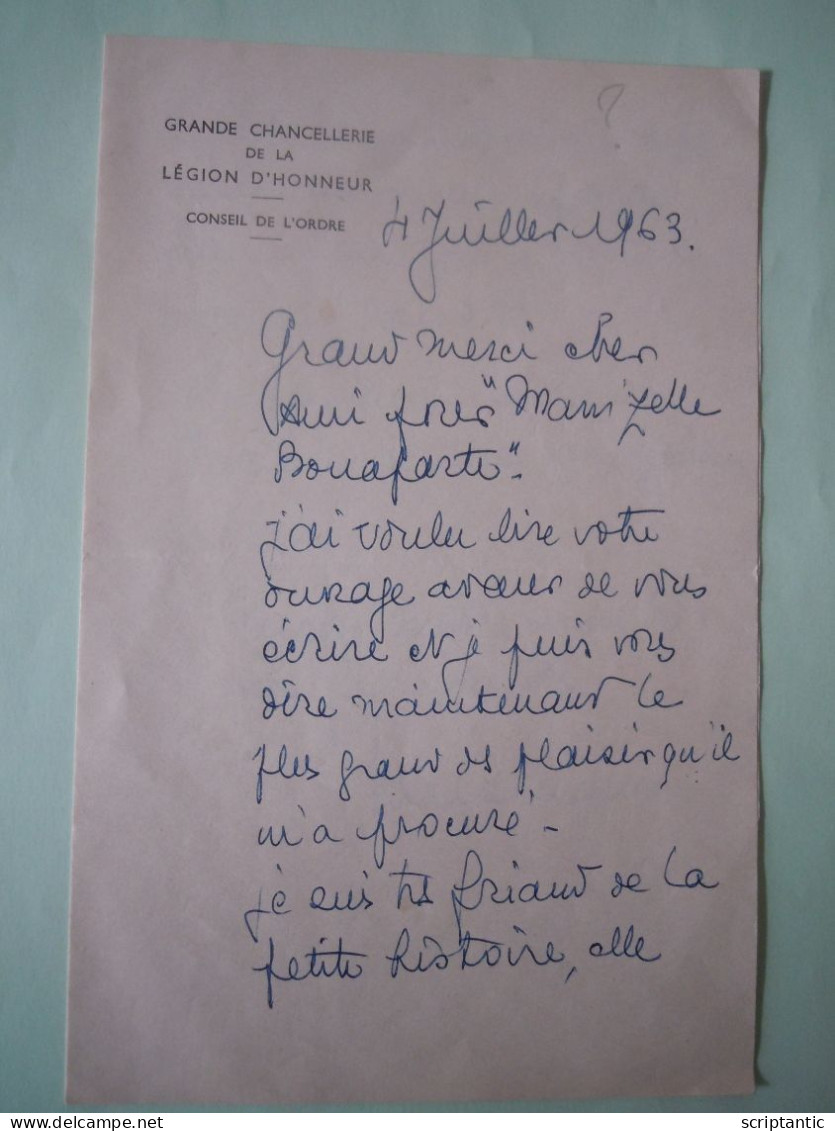 ?
GRANDE CHANCELLERIE
DE LA
LÉGION D'HONNEUR
CONSEIL DE L'ORDRE
4 Juillet 1963.
Grand merci cher
Ami pour "Mam'zelle
Bonaparte".
J'ai voulu lire votre
ouvrage avant de vous
écrire et je puis vous
dire maintenant le
plus grand des plaisirs qu'il
m'a procuré -
je suis très friand de la
petite histoire, elle
scriptantic